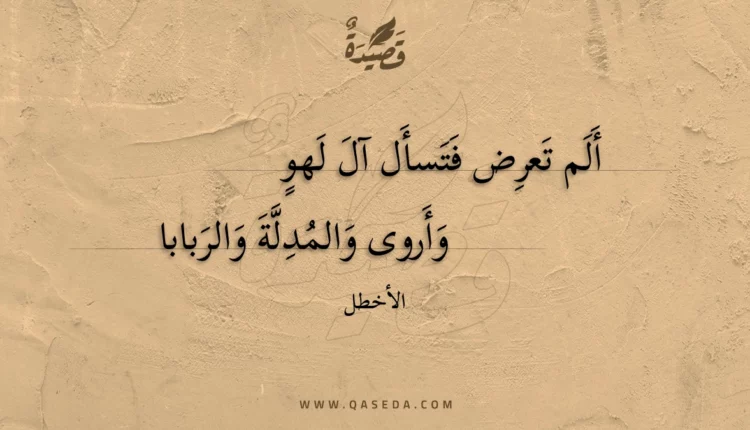 قَصِيدَةٌ
أَلَم تَعرِض فَتَسأَل آلَ لَهوٍ
وَأَروى وَالمُدِلَّةَ وَالرَبابا
الأخطل
WWW.QASEDA.COM